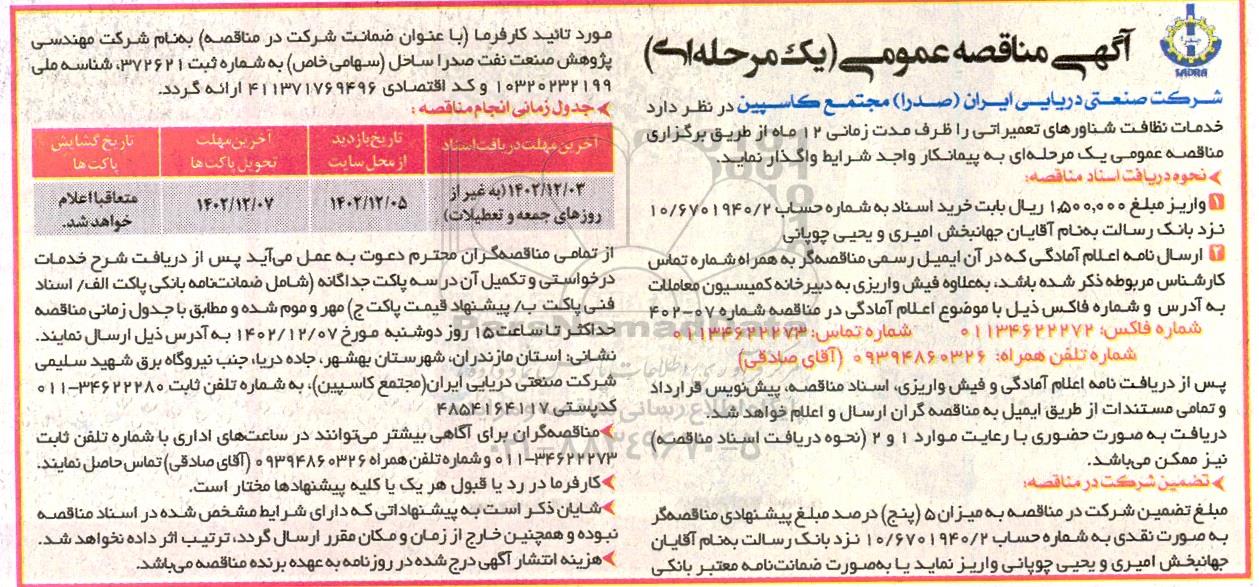 صدرا
SADRA
آگهی مناقصه عمومی (یک مرحله‌ای)
شرکت صنعتی دریایی ایران (صدرا) مجتمع کاسپین در نظر دارد
خدمات نظافت شناورهای تعمیراتی را ظرف مدت زمانی ۱۲ ماه از طریق برگزاری
مناقصه عمومی یک مرحله‌ای به پیمانکار واجد شرایط واگذار نماید.
نحوه دریافت اسناد مناقصه:
۱ واریز مبلغ ۱,۵۰۰,۰۰۰ ریال بابت خرید اسناد به شماره حساب ۱۰/۶۷۰۱۹۴۰/۲
نزد بانک رسالت به‌نام آقایان جهانبخش امیری و یحیی چوپانی
۲ ارسال نامه اعلام آمادگی که در آن ایمیل رسمی مناقصه‌گر به همراه شماره تماس
کارشناس مربوطه ذکر شده باشد، به‌علاوه فیش واریزی به دبیرخانه کمیسیون معاملات
به آدرس و شماره فاکس ذیل با موضوع اعلام آمادگی در مناقصه شماره ۰۷-۴۰۲
شماره فاکس: ۰۱۱۳۴۶۲۲۲۷۲ شماره تماس: ۰۱۱۳۴۶۲۲۲۷۳
شماره تلفن همراه: ۰۹۳۹۴۸۶۰۳۲۶ (آقای صادقی)
پس از دریافت نامه اعلام آمادگی و فیش واریزی، اسناد مناقصه، پیش‌نویس قرارداد
و تمامی مستندات از طریق ایمیل به مناقصه گران ارسال و اعلام خواهد شد.
دریافت به صورت حضوری با رعایت موارد ۱ و ۲ (نحوه دریافت اسناد مناقصه)
نیز ممکن می‌باشد.
تضمین شرکت در مناقصه:
مبلغ تضمین شرکت در مناقصه به میزان ۵ (پنج) درصد مبلغ پیشنهادی مناقصه‌گر
به صورت نقدی به شماره حساب ۱۰/۶۷۰۱۹۴۰/۲ نزد بانک رسالت به‌نام آقایان
جهانبخش امیری و یحیی چوپانی واریز نماید یا به‌صورت ضمانت‌نامه معتبر بانکی
مورد تائید کارفرما (با عنوان ضمانت شرکت در مناقصه) به‌نام شرکت مهندسی
پژوهش صنعت نفت صدرا ساحل (سهامی خاص) به شماره ثبت ۳۷۲۶۲۱، شناسه ملی
۱۰۳۲۰۲۳۲۱۹۹ و کد اقتصادی ۴۱۱۳۷۱۷۶۹۴۹۶ ارائه گردد.
جدول زمانی انجام مناقصه :
آخرین مهلت دریافت اسناد تاریخ بازدید از محل سایت آخرین مهلت تحویل پاکت‌ها تاریخ گشایش پاکت‌ها
۱۴۰۲/۱۲/۰۳ (به غیر از روزهای جمعه و تعطیلات) ۱۴۰۲/۱۲/۰۵ ۱۴۰۲/۱۲/۰۷ متعاقبا اعلام خواهد شد.
از تمامی مناقصه‌گران محترم دعوت به عمل می‌آید پس از دریافت شرح خدمات
درخواستی و تکمیل آن در سه پاکت جداگانه (شامل ضمانت‌نامه بانکی پاکت الف/ اسناد
فنی پاکت ب/ پیشنهاد قیمت پاکت ج) مهر و موم شده و مطابق با جدول زمانی مناقصه
حداکثر تا ساعت ۱۵ روز دوشنبه مورخ ۱۴۰۲/۱۲/۰۷ به آدرس ذیل ارسال نمایند.
نشانی: استان مازندران، شهرستان بهشهر، جاده دریا، جنب نیروگاه برق شهید سلیمی
شرکت صنعتی دریایی ایران (مجتمع کاسپین)، به شماره تلفن ثابت ۳۴۶۲۲۲۸۰-۰۱۱
کدپستی ۴۸۵۴۱۶۴۱۱۷
مناقصه‌گران برای آگاهی بیشتر می‌توانند در ساعت‌های اداری با شماره تلفن ثابت
۳۴۶۲۲۲۷۳-۰۱۱ و شماره تلفن همراه ۰۹۳۹۴۸۶۰۳۲۶ (آقای صادقی) تماس حاصل نمایند.
کارفرما در رد یا قبول هر یک یا کلیه پیشنهادها مختار است.
شایان ذکر است به پیشنهاداتی که دارای شرایط مشخص شده در اسناد مناقصه
نبوده و همچنین خارج از زمان و مکان مقرر ارسال گردد، ترتیب اثر داده نخواهد شد.
هزینه انتشار آگهی درج شده در روزنامه به عهده برنده مناقصه می‌باشد.
۰۲۱-۸۸۳۴۹۶۷۰-۵